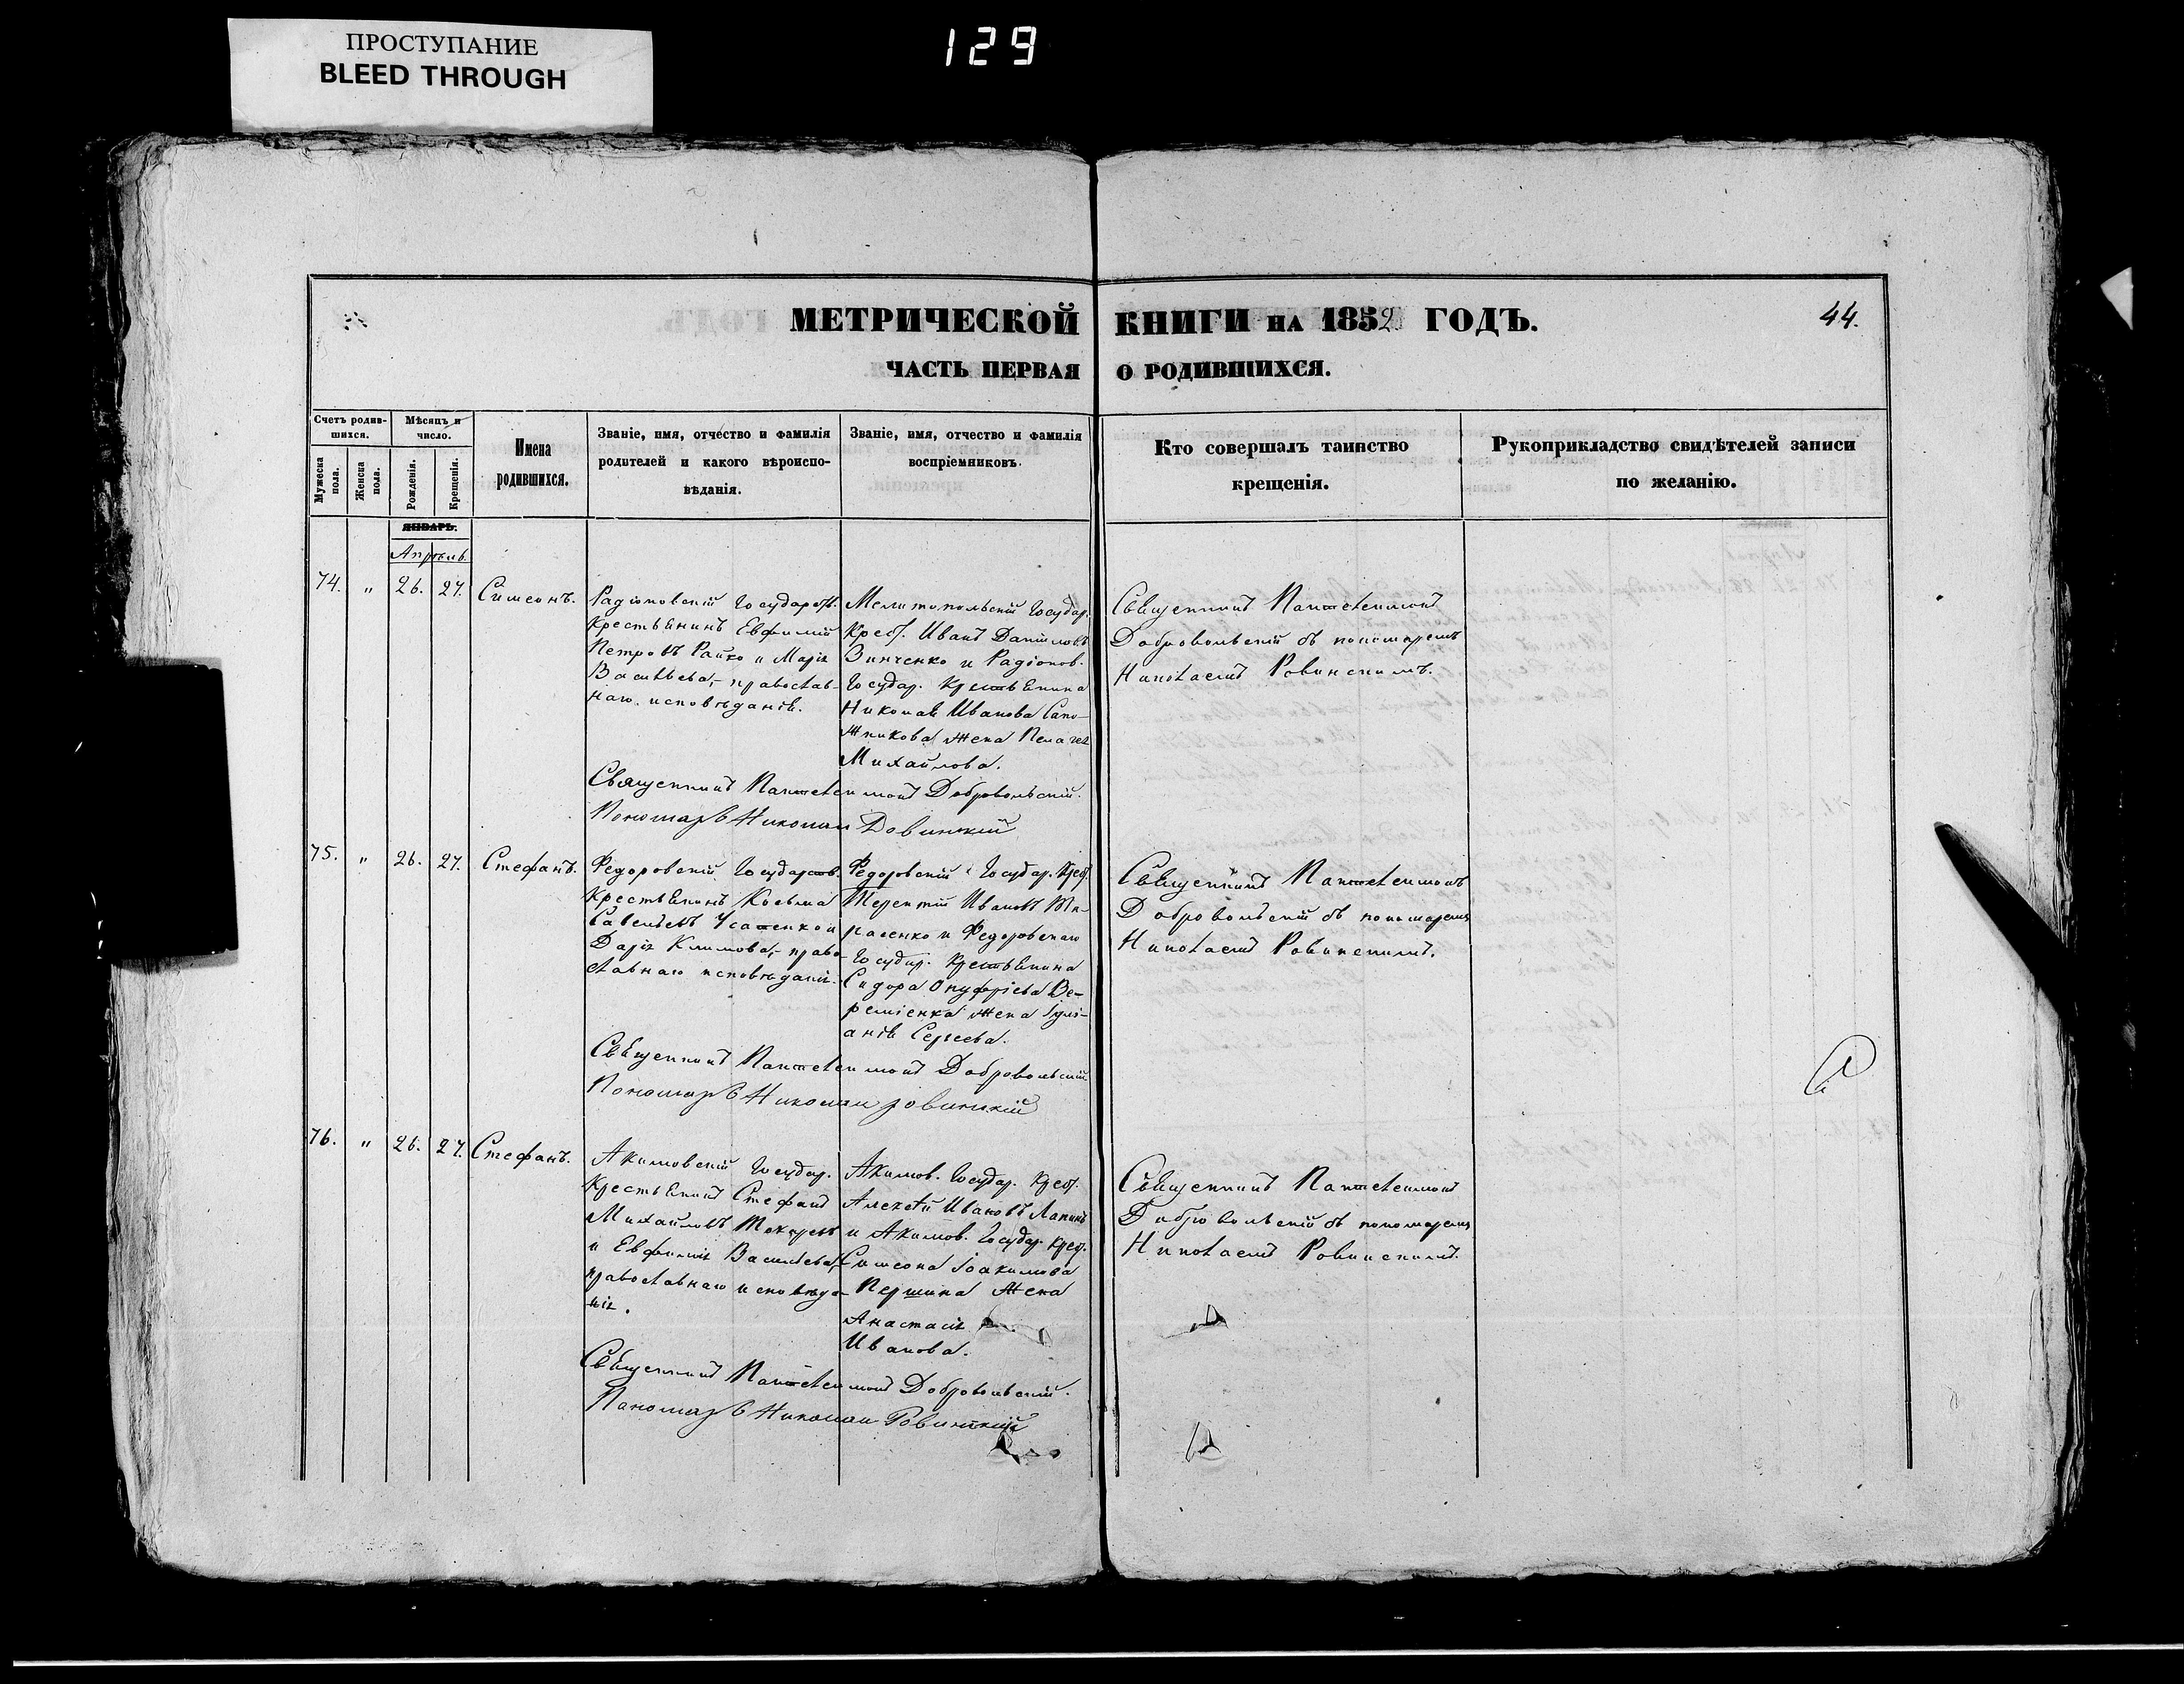 ПРОСТУПАНИЕ
BLEED THROUGH
129
МЕТРИЧЕСКОЙ КНИГИ НА 1852 ГОДЪ.
44.
ЧАСТЬ ПЕРВАЯ О РОДИВШИХСЯ.
Счетъ родившихся.
Мужеска пола.
Женска пола.
Мѣсяцъ и число.
Рожденія.
Крещенія.
Имена родившихся.
Званіе, имя, отчество и фамилія родителей и какого вѣроисповѣданія.
Званіе, имя, отчество и фамилія воспріемниковъ.
Кто совершалъ таинство крещенія.
Рукоприкладство свидѣтелей записи по желанію.
ЯНВАРЬ.
Апрѣль.
74. " 26. 27. Симеонъ.
Радіоновскій Государств.
Крестьянинъ Евфимій
Петровъ Райко и Марія
Васильева, православ-
наго исповѣданія.
Мелитопольскій Государ.
Крест. Иванъ Даніиловъ
Зинченко и Радіонов.
Государ. Крестьянина
Николая Иванова Сапо-
жникова жена Пелагея
Михайлова.
Священникъ Пантелеимонъ
Добровольскій съ пономаремъ
Николаемъ Ровинскимъ.
Священникъ Пантелеимонъ Добровольскій.
Пономарь Николай Ровинскій
75. " 26. 27. Стефанъ.
Федоровскій Государств.
Крестьянинъ Косьма
Савельевъ Усатенко и
Дарія Климова, право-
славнаго исповѣданія.
Федоровскій Государ. Крест.
Терентій Ивановъ
и Федоровскаго
Государ. Крестьянина
Сидора Онуфріева Ве-
реміенка жена Іулі-
анія Сергеева.
Священникъ Пантелеимонъ
Добровольскій съ пономаремъ
Николаемъ Ровинскимъ.
Священникъ Пантелеимонъ Добровольскій
Пономарь Николай Ровинскій
76. " 26. 27. Стефанъ.
Акимовскій Государ.
Крестьянинъ Стефанъ
Михайловъ Токаревъ
и Евфимія Васильева,
православнаго исповѣда-
нія.
Акимов. Государ. Крест.
Алексѣй Ивановъ Лапинъ
и Акимов. Государ. Крест.
Симеона Іоакимова
Першина жена
Анастасія
Иванова.
Священникъ Пантелеимонъ
Добровольскій съ пономаремъ
Николаемъ Ровинскимъ.
Священникъ Пантелеимонъ Добровольскій.
Пономарь Николай Ровинскій